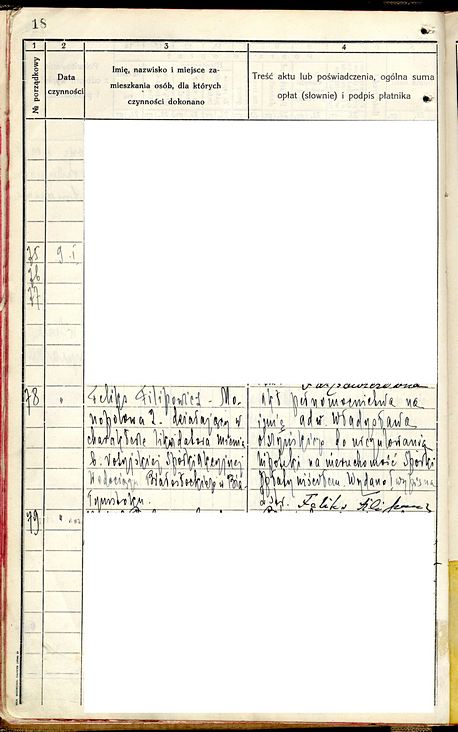 18
1 2 3 4
№ porządkowy
Data czynności
Imię, nazwisko i miejsce za-
mieszkania osób, dla których
czynności dokonano
Treść aktu lub poświadczenia, ogólna suma
opłat (słownie) i podpis płatnika
75 9.I
76
77
78 " Feliks Filipowicz - Mo-
nopolowa 2. działający w
charakterze likwidatora mienia
b. rosyjskiej Spółki Akcyjnej
Wodociągu Białostockiego w Bia-
łymstoku.
akt pełnomocnictwa na
imię adw. Władysława
Olszyńskiego do uregulowania
hipoteki na nieruchomość Spółki
Wydano wypis na
Feliks Filipowicz
79 "